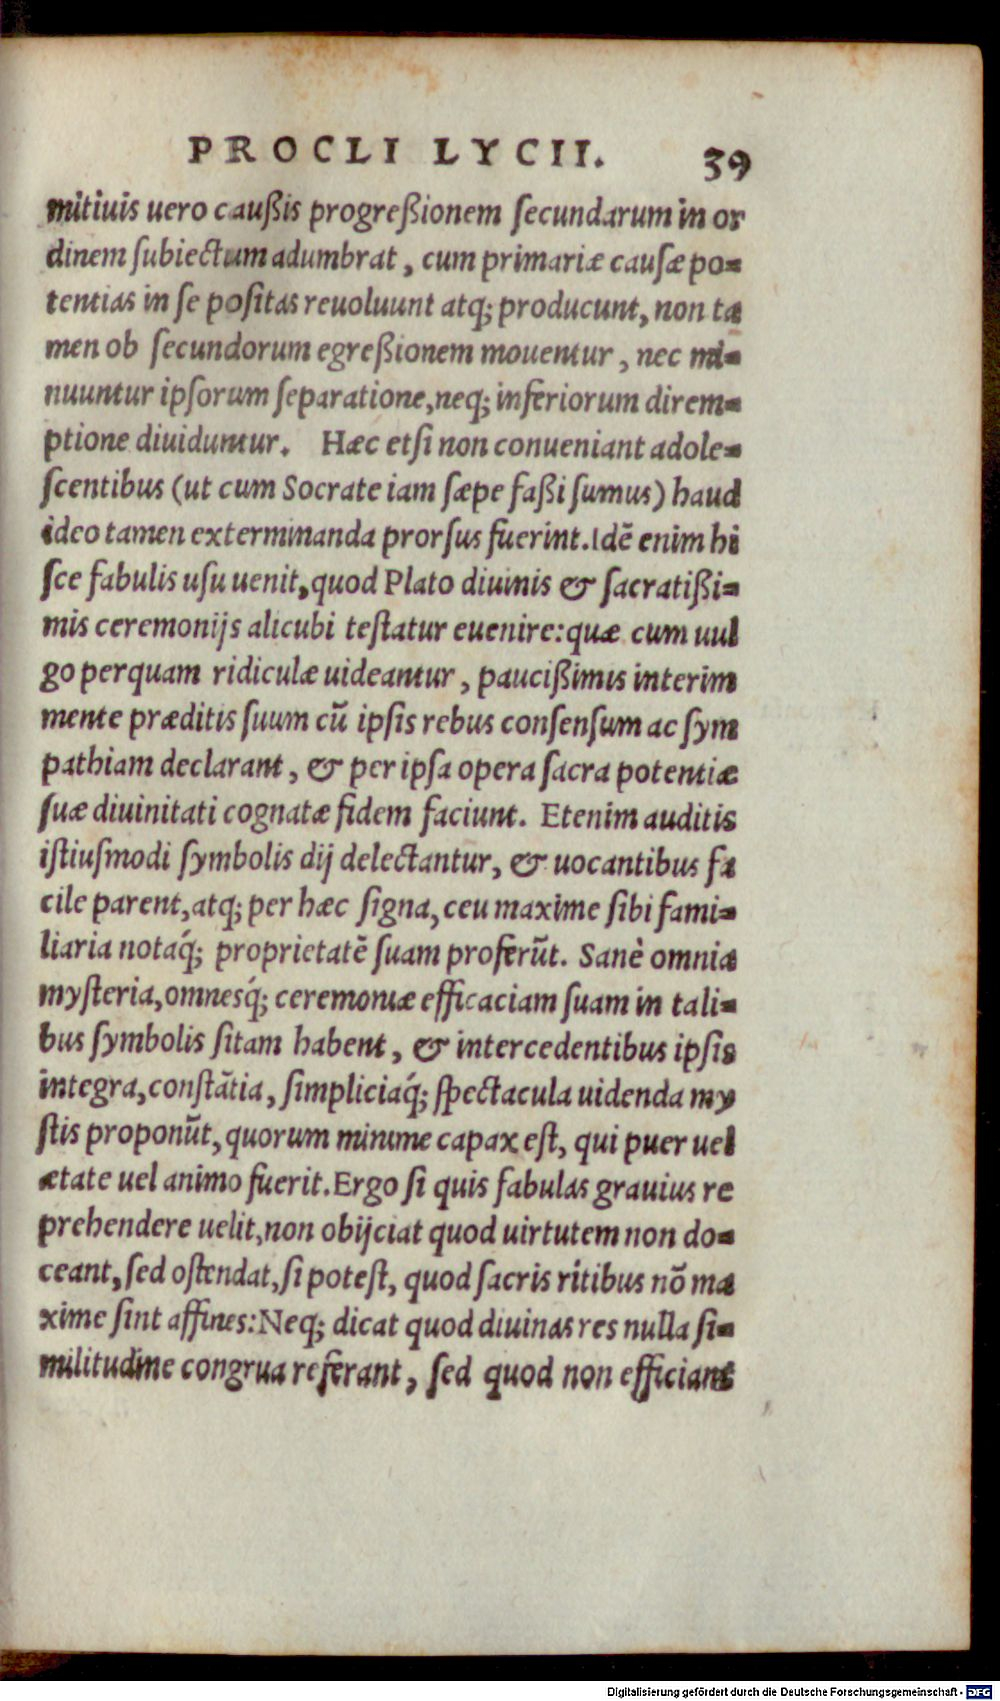 PROCLI LYCII. 39
mitiuis uero caußis progreßionem ſecundarum in or
dinem ſubiectum adumbrat, cum primariæ cauſæ po=
tentias in ſe poſitas reuoluunt atq; producunt, non ta
men ob ſecundorum egreßionem mouentur, nec mi=
nuuntur ipſorum ſeparatione, neq; inferiorum direm=
ptione diuiduntur. Hæc etſi non conueniant adole=
ſcentibus (ut cum Socrate iam ſæpe faßi ſumus) haud
ideo tamen exterminanda prorſus fuerint. Idē enim hi
ſce fabulis uſu uenit, quod Plato diuinis & ſacratißi=
mis ceremonijs alicubi teſtatur euenire: quæ cum uul
go perquam ridiculæ uideantur, paucißimis interim
mente præditis ſuum cū ipſis rebus conſenſum ac ſym
pathiam declarant, & per ipſa opera ſacra potentiæ
ſuæ diuinitati cognatæ fidem faciunt. Etenim auditis
iſtiuſmodi ſymbolis dij delectantur, & uocantibus fa
cile parent, atq; per hæc ſigna, ceu maxime ſibi fami=
liaria notaq́; proprietatē ſuam proferūt. Sanè omnia
myſteria, omnesq́; ceremoniæ efficaciam ſuam in tali=
bus ſymbolis ſitam habent, & intercedentibus ipſis
integra, conſtātia, ſimpliciaq́; ſpectacula uidenda my
ſtis proponūt, quorum minime capax eſt, qui puer uel
ætate uel animo fuerit. Ergo ſi quis fabulas grauius re
prehendere uelit, non obijciat quod uirtutem non do=
ceant, ſed oſtendat, ſi poteſt, quod ſacris ritibus nō ma
xime ſint affines: Neq; dicat quod diuinas res nulla ſi=
militudine congrua referant, ſed quod non efficiant
Digitalisierung gefördert durch die Deutsche Forschungsgemeinschaft - DFG